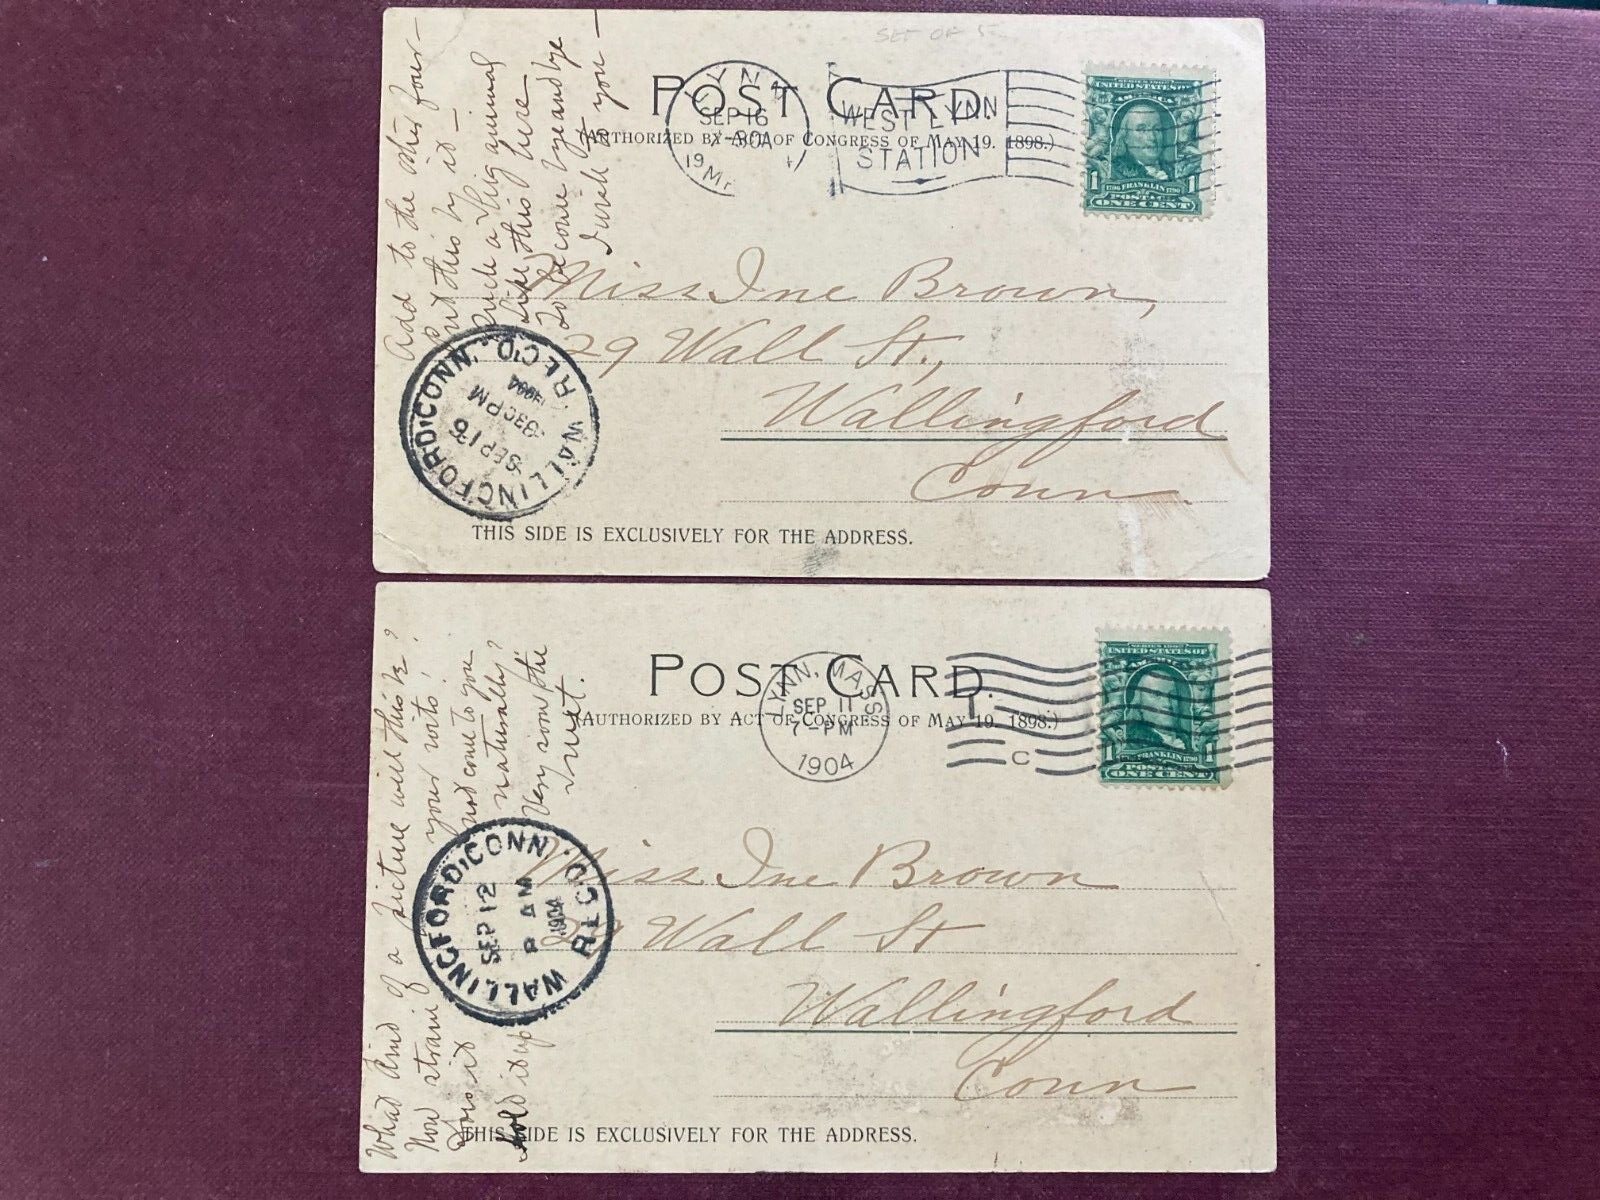 SET OF 5
POST CARD.
(AUTHORIZED BY ACT OF CONGRESS OF MAY 19, 1898.)
LYNN
SEP 16
7-30A
19 4
WEST LYNN
STATION
SERIES 1902
UNITED STATES OF
AMERICA
1 1706 FRANKLIN 1790 1
POSTAGE
ONE CENT
Add to the other four—
Put this by it—
Such a big animal
Like this here
To become bye and bye
I wish to you—
Miss Ine Brown,
29 Wall St.,
Wallingford
Conn.
WALLINGFORD, CONN. REC'D.
SEP 16
330 PM
1904
THIS SIDE IS EXCLUSIVELY FOR THE ADDRESS.
POST CARD.
(AUTHORIZED BY ACT OF CONGRESS OF MAY 19, 1898.)
LYNN, MASS
SEP 11
7-PM
1904
C
SERIES 1902
UNITED STATES OF
AMERICA
1 FRANKLIN 1790 1
POSTAGE
ONE CENT
What kind of a picture will this be?
Now strain your wits!
Does it not come to you
naturally?
Hold it up
Very soon the
truest.
Miss Ine Brown
29 Wall St
Wallingford
Conn
WALLINGFORD, CONN. REC'D
SEP 12
8 AM
1904
THIS SIDE IS EXCLUSIVELY FOR THE ADDRESS.